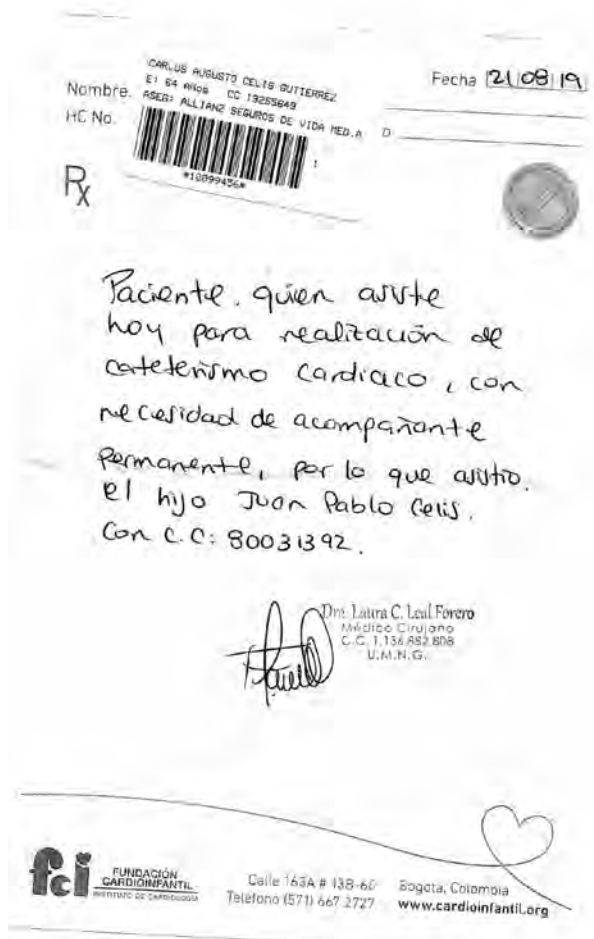 CARLOS AUGUSTO CELIS GUTIERREZ
E: 64 Años CC 19255649
ASEG: ALLIANZ SEGUROS DE VIDA MED.A
Nombre.
HC No.
Fecha 21 08 19
*10099456*
Rx
Paciente, quien asiste
hoy para realización de
cateterismo cardiaco, con
necesidad de acompañante
permanente, por lo que asistio.
el hijo Juan Pablo Celis.
Con C.C: 80031392.
Dra. Laura C. Leal Forero
Médico Cirujano
C.C. 1.136.882.808
U.M.N.G.
fci FUNDACIÓN
CARDIOINFANTIL
INSTITUTO DE CARDIOLOGÍA
Calle 163A # 13B-60
Teléfono (571) 667 2727
Bogotá, Colombia
www.cardioinfantil.org